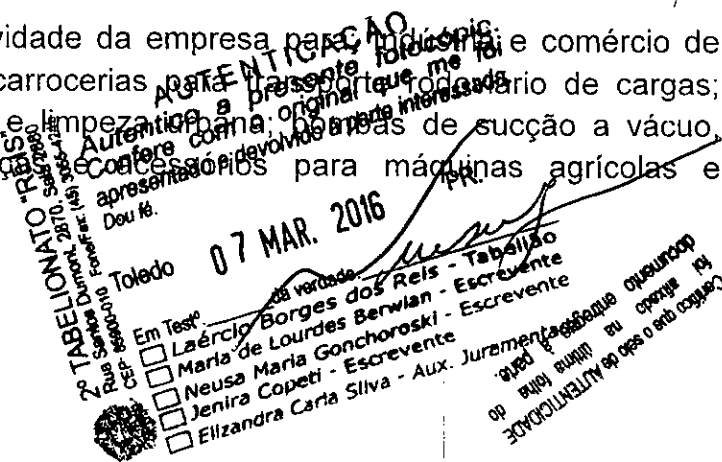 vidade da empresa para; Indústria e comércio de
carrocerias para transporte rodoviário de cargas;
e limpeza urbana; bombas de sucção a vácuo,
e acessórios para máquinas agrícolas e
AUTENTICAÇÃO
Autentico a presente fotocópia.
Confere com o original que me foi
apresentado e devolvido à parte interessada
Dou fé.
PR.
Toledo 07 MAR. 2016
Em Testº da verdade
Laércio Borges dos Reis - Tabelião
Maria de Lourdes Berwian - Escrevente
Neusa Maria Gonchoroski - Escrevente
Jenira Copeti - Escrevente
Elizandra Carla Silva - Aux. Juramentada
2º TABELIONATO "REIS"
Rua Santos Dumont, 2870, Sala
CEP 85900-010 Fone/Fax: (45)
Certifico que o selo de AUTENTICIDADE
foi afixado na última folha do
documento entregue à parte.